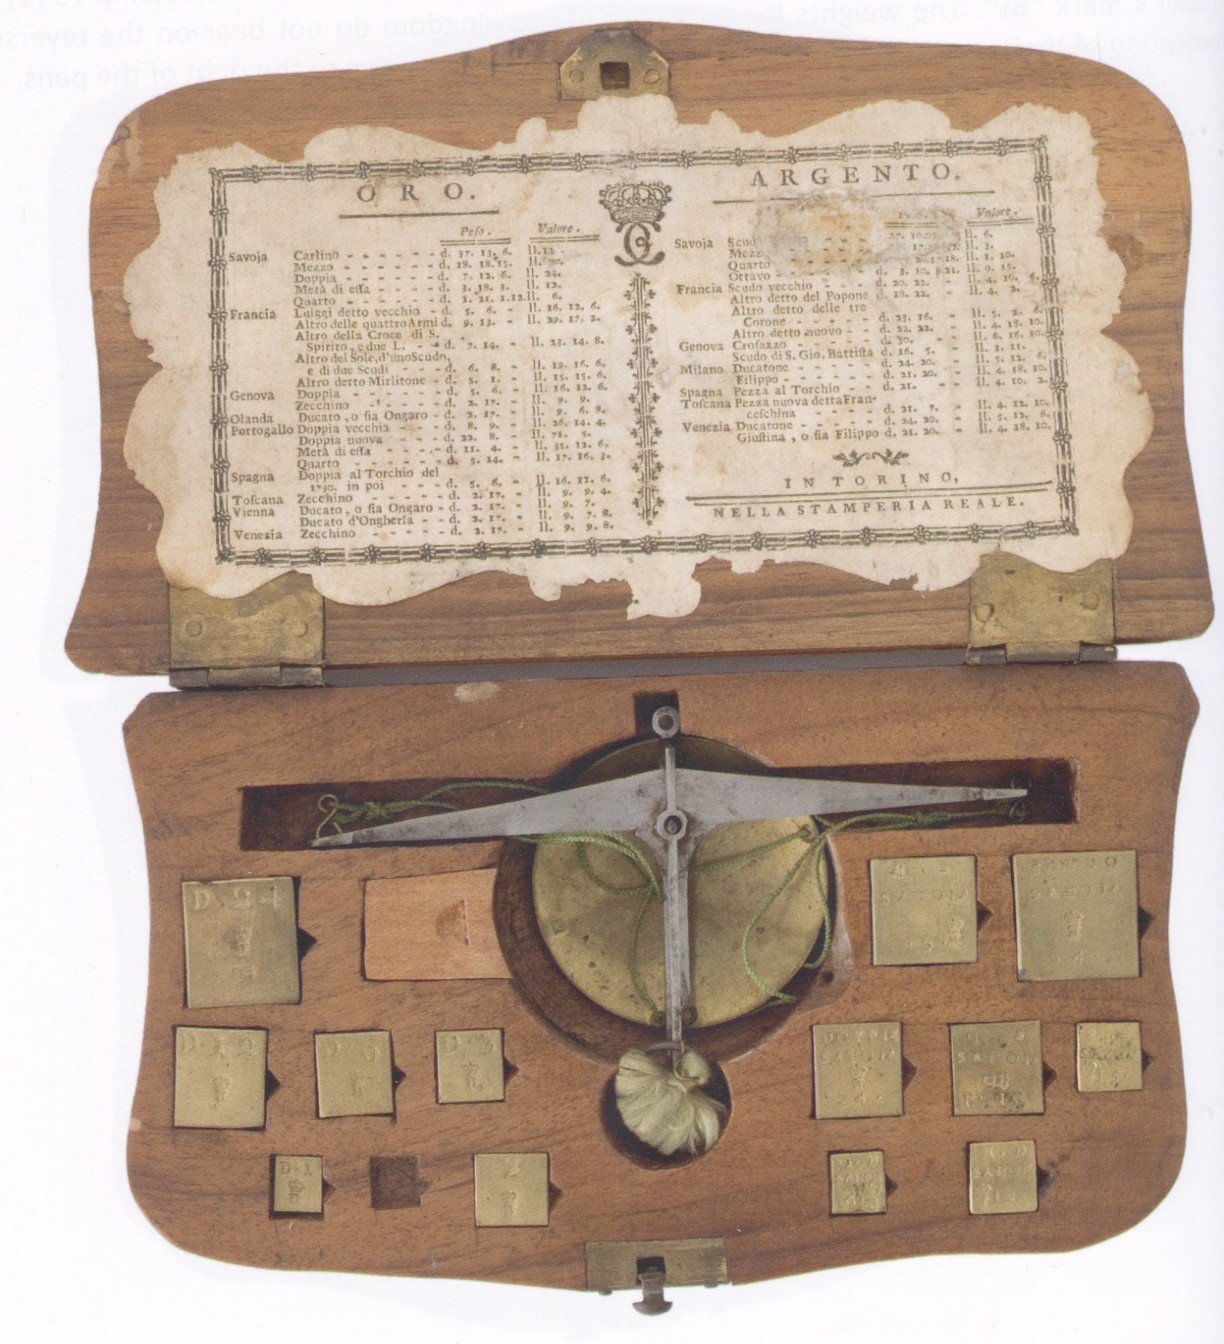 ORO.
Peso. Valore.
Savoja Carlino d. 37. 13. 6. ll. 12
Mezzo d. 18. 18. 15.
Doppia d. 7. 12. 6. ll. 24.
Metà di essa d. 3. 18. 3. ll. 12.
Quarto d. 1. 21. 1.12 ll. 6.
Francia Luiggi detto vecchio d. 5. 6. ll. 16. 12. 6.
Altro delle quattro Armi d. 9. 13. ll. 29. 17. 2.
Altro della Croce di S.
Spirito, e due L. d. 7. 14. ll. 23. 14. 8.
Altro del Sole, d'uno Scudo,
e di due Scudi d. 6. 8. ll. 19. 16. 6.
Altro detto Mirlitone d. 5. 1. ll. 15. 15. 6.
Genova Doppia d. 5. 6. ll. 16. 12. 6.
Zecchino d. 2. 17. ll. 9. 9.
Olanda Ducato, o sia Ongaro d. 2. 17. ll. 9. 6. 8.
Portogallo Doppia vecchia d. 8. 9. ll. 26. 14. 4.
Doppia nuova d. 22. 8. ll. 71. 5.
Metà di essa d. 11. 4. ll. 35. 12. 6.
Quarto d. 5. 14. ll. 17. 16. 3.
Spagna Doppia al Torchio del
1730. in poi d. 5. 6. ll. 16. 12. 6.
Toscana Zecchino d. 2. 17. ll. 9. 9. 4.
Vienna Ducato, o sia Ongaro d. 2. 17. ll. 9. 7.
Ducato d'Ongheria d. 2. 17. ll. 9. 7. 8.
Venezia Zecchino d. 2. 17. ll. 9. 9. 8.
ARGENTO.
Valore.
Savoja ll. 6.
Mezz
Quarto ll. 1. 10.
Ottavo d. 3. 10. ll. 0. 15.
Francia Scudo vecchio d. 20. 22. ll. 4. 10. 6.
Altro detto del Popone d. 18. 22. ll. 4. 2.
Altro detto delle tre
Corone d. 23. 16. ll. 5. 2. 6.
Altro detto nuovo d. 22. 22. ll. 4. 18. 10.
Genova Crosazzo d. 30. ll. 6. 16. 10.
Scudo di S. Gio. Battista d. 16. 5. ll. 3. 11.
Milano Ducatone d. 24. 20. ll. 5. 12. 6.
Filippo d. 21. 20. ll. 4. 18. 10.
Spagna Pezza al Torchio d. 21. ll. 4. 10. 2.
Toscana Pezza nuova detta Fran-
ceschina d. 21. 7. ll. 4. 12. 10.
Venezia Ducatone d. 24. 20. ll. 5. 12. 6.
Giustina, o sia Filippo d. 21. 20. ll. 4. 18. 10.
IN TORINO,
NELLA STAMPERIA REALE.
D·24
SAVOIA
D·12
SAVOIA
SAVOIA
D·1